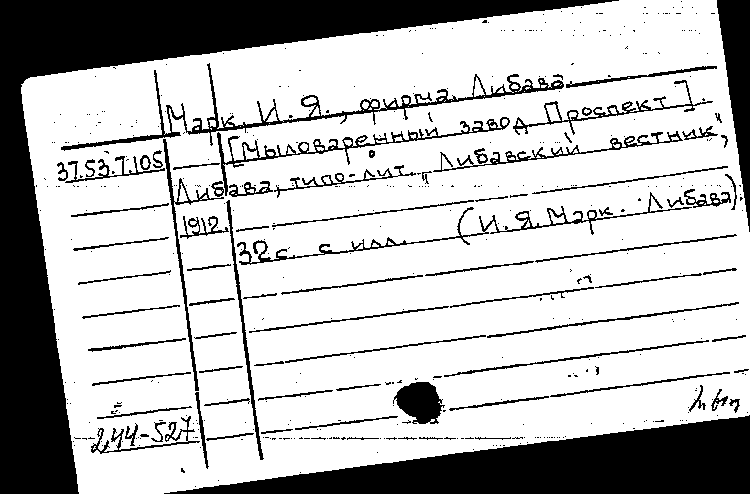 Марк, И. Я., фирма. Либава.
37.53.7.105 [Мыловаренный завод Проспект].
Либава, типо-лит. „Либавский вестник",
1912.
32 с. с илл. (И. Я. Марк. Либава).
2,44-527